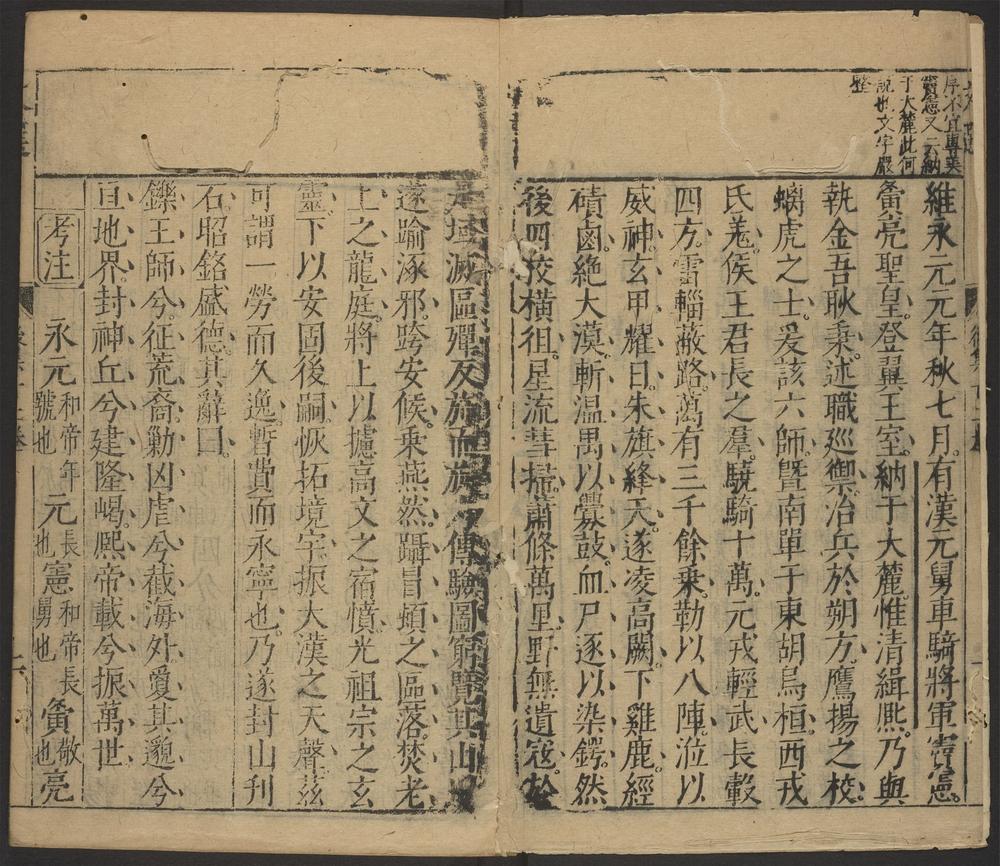 序不宜專美
竇憲又云納
于大麓此何
說也文字嚴
整
維永元元年秋七月有漢元舅車騎將軍竇憲
寅亮聖皇登翼王室納于大麓惟清緝熙乃與
執金吾耿秉述職巡禦治兵於朔方鷹揚之校
螭虎之士爰該六師曁南單于東胡烏桓西戎
氏羗侯王君長之羣驍騎十萬元戎輕武長轂
四方雷輜蔽路萬有三千餘乗勒以八陣涖以
威神玄甲耀日朱旗絳天遂凌高闕下雞鹿經
磧鹵絶大漠斬温禺以釁鼓血尸逐以染鍔然
後四校橫徂星流彗掃蕭條萬里野無遺寇於
是域滅區殫反旆而旋傳驗圖窮覽其山川
遂踰涿邪跨安候乗燕然躡冒頓之區落焚老
上之龍庭將上以攄高文之宿憤光祖宗之玄
靈下以安固後嗣恢拓境宇振大漢之天聲茲
可謂一勞而久逸暫費而永寧也乃遂封山刊
石昭銘盛德其辭曰
鑠王師兮征荒裔勦凶虐兮截海外敻其邈兮
亘地界封神丘兮建隆嵑熈帝載兮振萬世
考注 永元和帝年號也元長也憲和帝長舅也寅敬也亮